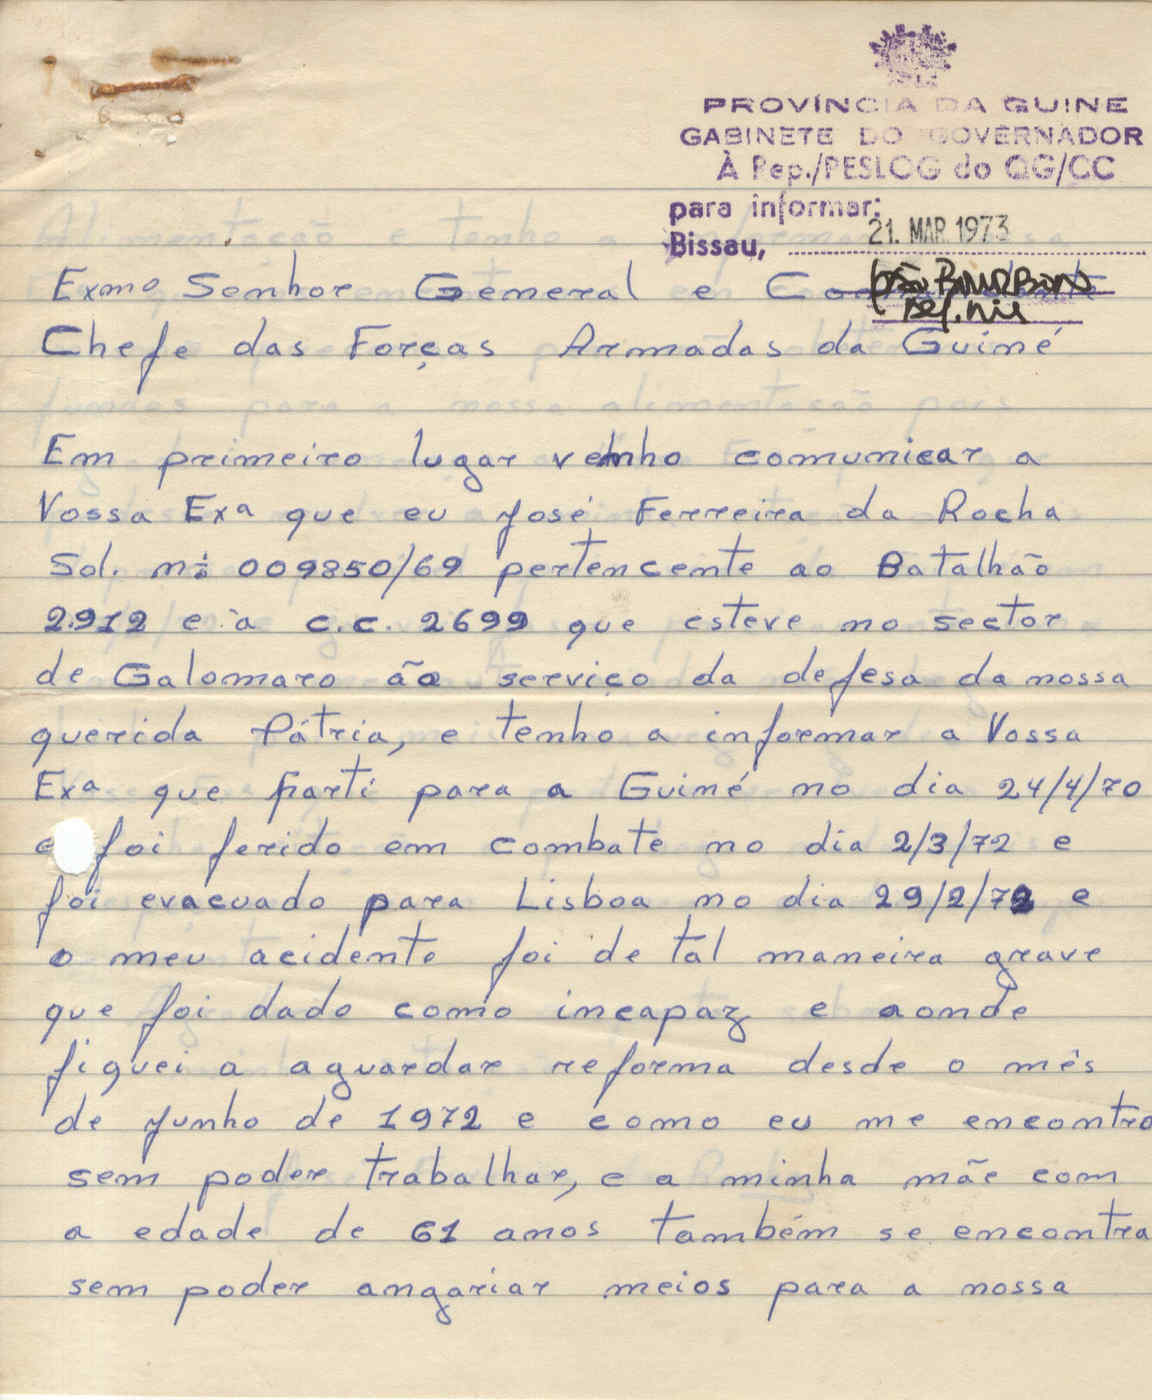 PROVÍNCIA DA GUINE
GABINETE DO GOVERNADOR
À Rep./PESLOG do QG/CC
para informar:
Bissau, 21. MAR 1973
Exmo Senhor General e
Chefe das Forças Armadas da Guiné
Em primeiro lugar venho comunicar a
Vossa Exa que eu José Ferreira da Rocha
Sol. nº 009850/69 pertencente ao Batalhão
2.912 e à c.c. 2699 que esteve no sector
de Galomaro ão serviço da defesa da nossa
querida Pátria, e tenho a informar a Vossa
Exa que parti para a Guiné no dia 24/4/70
e foi ferido em combate no dia 2/3/72 e
foi evacuado para Lisboa no dia 29/2/72 e
o meu acidente foi de tal maneira grave
que foi dado como incapaz e aonde
fiquei a aguardar reforma desde o mês
de Junho de 1972 e como eu me encontro
sem poder trabalhar, e a minha mãe com
a edade de 61 anos também se encontra
sem poder angariar meios para a nossa